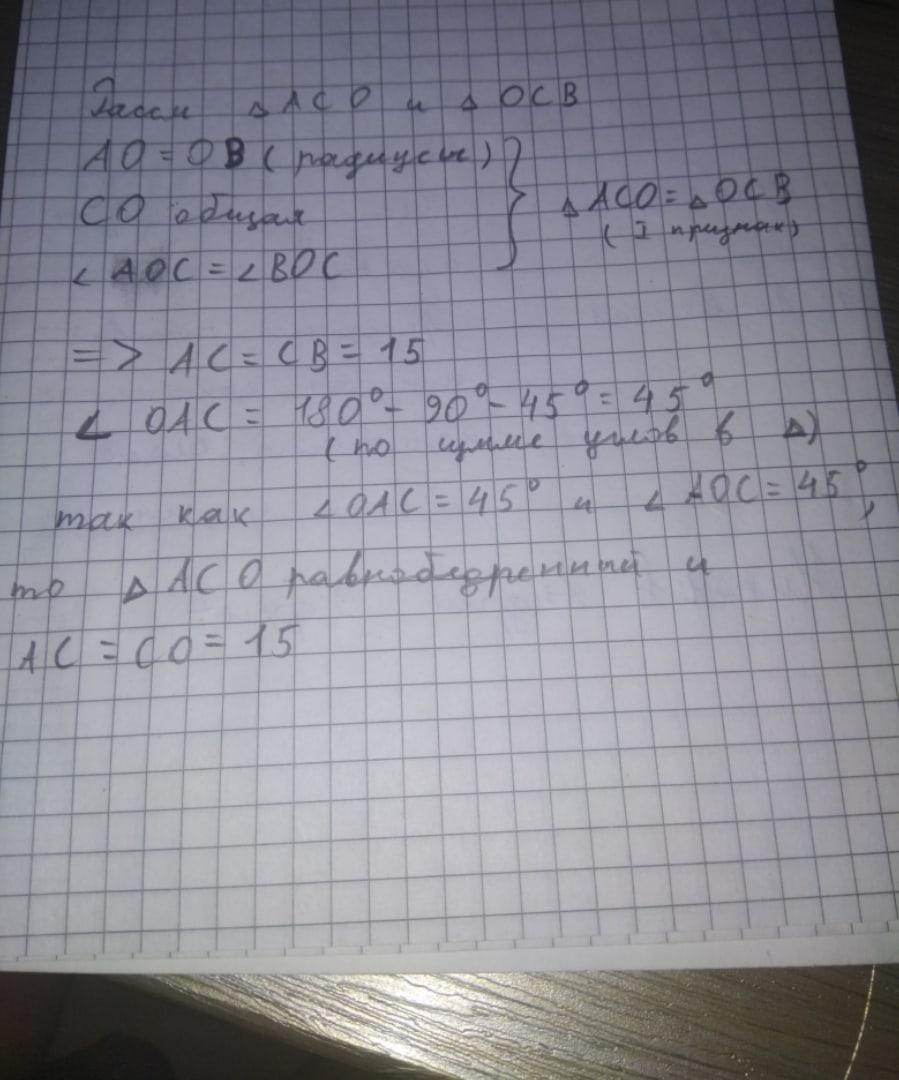 Рассм △ ACO и △ OCB
AO = OB (радиусы)
CO общая
∠ AOC = ∠ BOC
△ ACO = △ OCB
(I признак)
=> AC = CB = 15
∠ OAC = 180° - 90° - 45° = 45°
(по сумме углов в △)
так как ∠ OAC = 45° и ∠ AOC = 45°,
то △ ACO равнобедренный и
AC = CO = 15